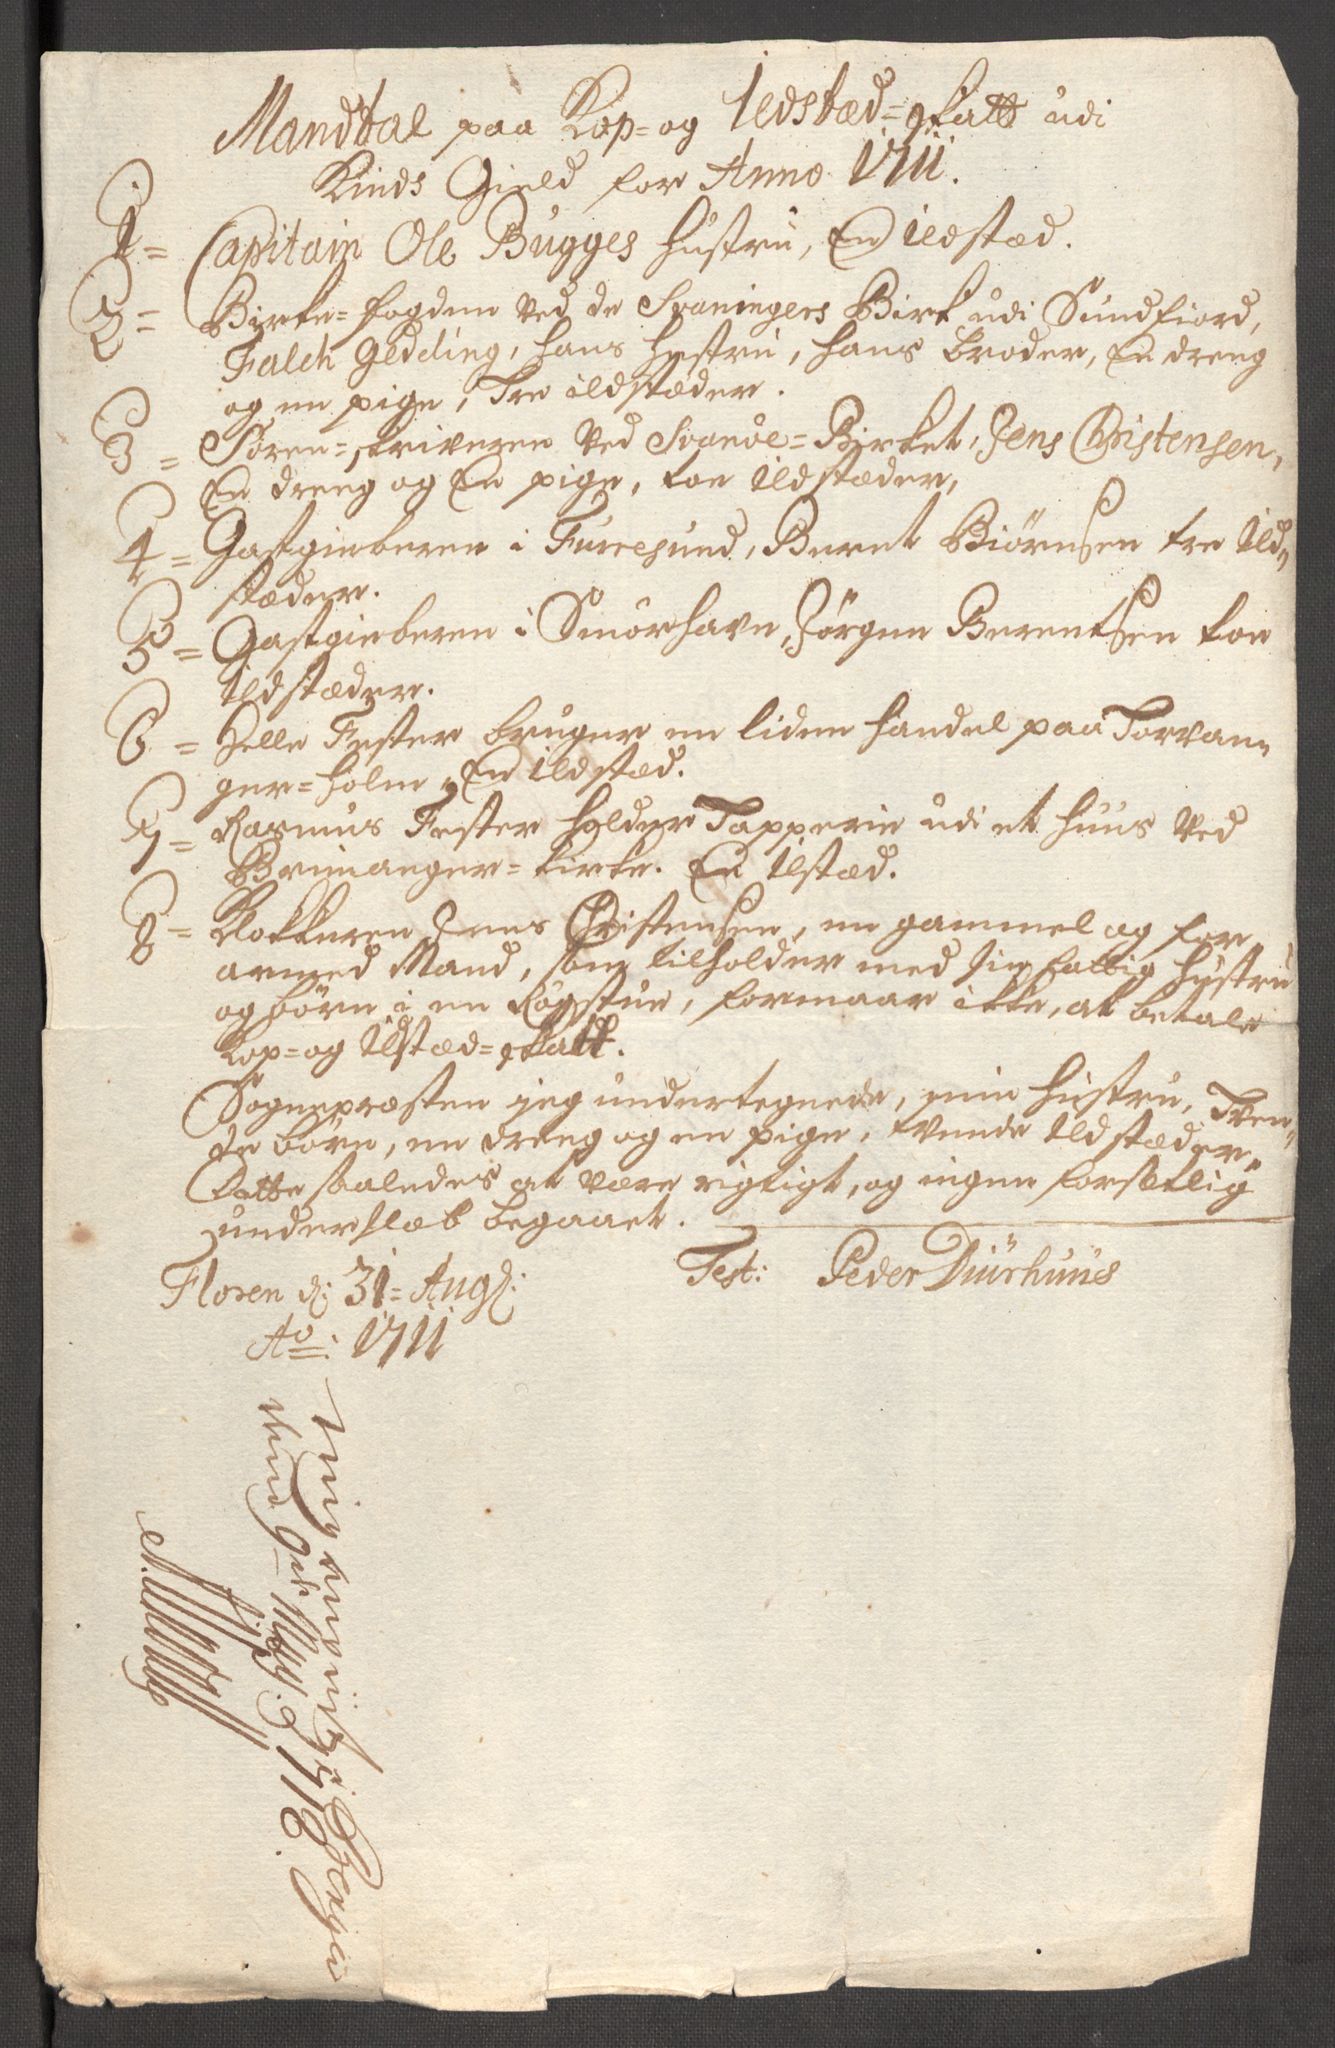 Mandtal paa Kop= og Ildstæd=skatt udi
Kinds Gield for Anno 1711.
1= Capitain Ole Bugges hustru, En ildstæd.
2= Birke=fogden Ved de Svaningers Birk udi Sundfiord,
Falch Gedding, hans hustru, hans broder, En dreng
og en pige, Tre ildstæder.
3= Søren=skriveren Ved Svanøe=Birket, Jens Christensen,
En dreng og En pige, toe Ildstæder,
4= Gastgieberen i Furresund, Bernt Biørnsen tre Ild=
stæder.
5= Gastgieberen i Smørhavn, Jørgen Berentsen toe
Ildstæder.
6= Helle Fester bruger en liden handel paa Torvan=
ger=holm, En ildstæd.
7= Rasmus Fester holder Tapperie udi et huus Ved
Bremanger=kirke. En Ilstæd.
8= Klokkeren Jens Christensen, en gammel og for
armed Mand, som tilholder med sin fattig hustru
og børn i en Røgstue, formaar ikke, at betale
Kop= og Ildstæd=skatt.
Sognepræsten jeg undertegnede, min hustru, Tren=
de børn, en dreng og en pige, tvende Ildstæder.
Dette saaledes at være rigtigt, og ingen forsetlig
underslæb begaaet.
Test: Peder Diurhuus
Floren d: 31= Aug:
Ao: 1711
i Bergen
1718.